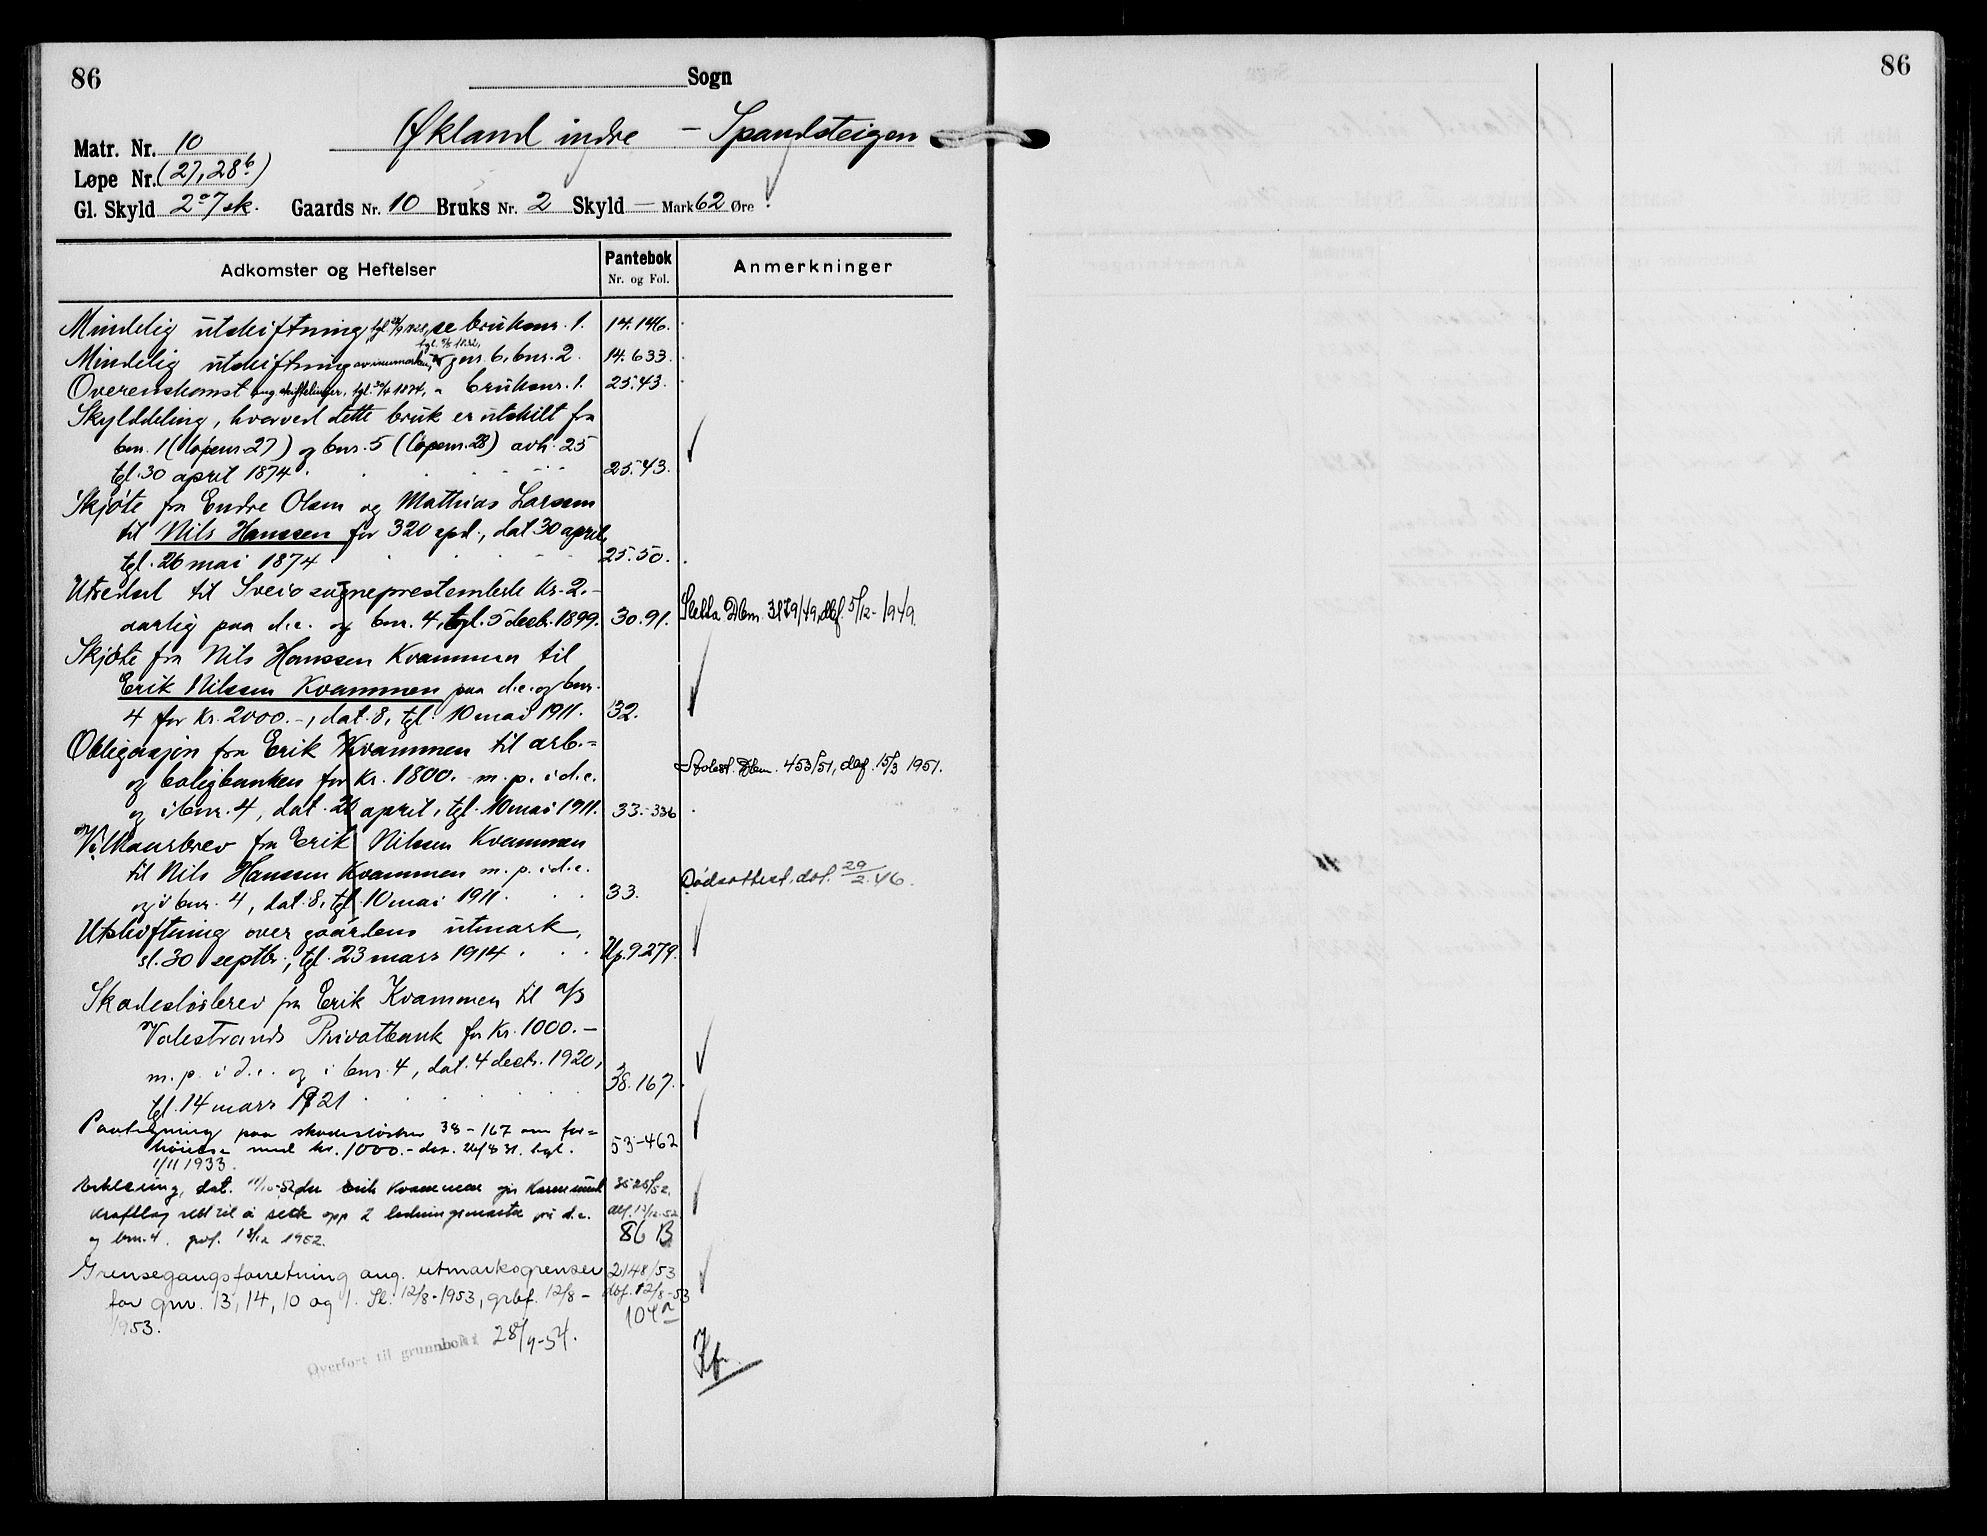 86
Sogn
86
Matr. Nr. 10
Økland indre – Spandsteigen
Løpe Nr. (27, 28b)
Gl. Skyld 2 o 7 sk. Gaards Nr. 10 Bruks Nr. 2 Skyld — Mark 62 Øre
Adkomster og Heftelser
Pantebok
Nr. og Fol.
Anmerkninger
Mindelig utskiftning, se bruksnr. 1. 14.146.
Mindelig utskiftning av innmarken, gnr. 6, bnr. 2. 14.633.
Overenskomst ang. tgl. 30/4 1874, " bruksnr. 1. 25.43.
Skylddeling, hvorved dette bruk er utskilt fra
bnr. 1 (løpenr. 27) og bnr. 5 (løpenr. 28) avh. 25
tgl. 30 april 1874. 25.43.
Skjøte fra Endre Olsen og Mathias Larsen
til Nils Hanssen for 320 spd., dat 30 april,
tgl. 26 mai 1874 25.50.
Utsedsel til Sveio sogneprestembede Kr. 2.–
aarlig paa d.e. og bnr. 4, tgl. 5 decb. 1899. 30.91. Sletta Dbnr. 3179/49, dbf. 5/12-1949.
Skjøte fra Nils Hanssen Kvammen til
Erik Nilssen Kvammen paa d.e. og bnr.
4 for Kr. 2000.–, dat. 8, tgl. 10 mai 1911. 32.
Obligasjon fra Erik Kvammen til arb.=
og boligbanken for Kr. 1800. m. p. i d.e.
og i bnr. 4, dat. 20 april, tgl. 10 mai 1911. 33.-336
Avlest. Dbnr. 453/51, dbf. 15/3 1951.
Vilkaarsbrev fra Erik Nilssen Kvammen
til Nils Hanssen Kvammen m. p. i d.e.
og i bnr. 4, dat. 8, tgl. 10 mai 1911. 33.
Dødsattest, dat. 29/2.46.
Utskiftning over gaardens utmark,
sl. 30 septbr., tgl. 23 mars 1914 Up. 9.279.
Skadesløsbrev fra Erik Kvammen til a/s
Valestrands Privatbank for Kr. 1000.–
m. p. i d.e. og i bnr. 4, dat. 4 decb. 1920,
tgl. 14 mars 1921 38.167.
Paategning paa skadesløsbr. 38-167 om for=
høielse med kr. 1000.- dat. 31. tgl.
1/11 1933. 53-462
Erklæring, dat. 11/10-52 der Erik Kvammen gir Karmsund
kraftlag rett til å sette opp 2 ledningsmaster på d.e.
og bnr. 4. gbf. 13/12 1952.
3525/52.
dbf. 13/12-52
86 B
Grensegangsforretning ang. utmarksgrenser
for gnr. 13, 14, 10 og 1. Sl. 12/8-1953, gbf. 12/8-
1953.
2148/53
dbf. 12/8-53
104
Overført til grunnboka 28/9-54.